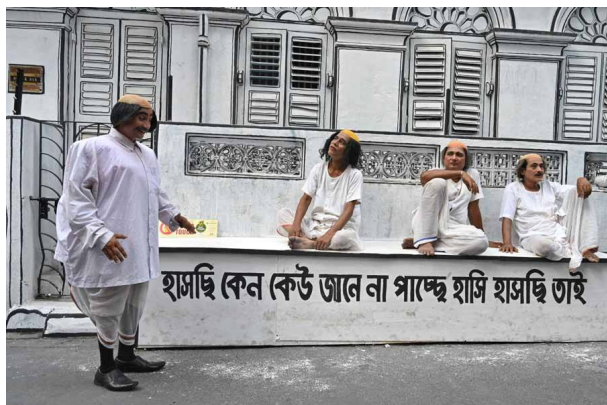 হাসছি কেন কেউ জানে না পাচ্ছে হাসি হাসছি তাই